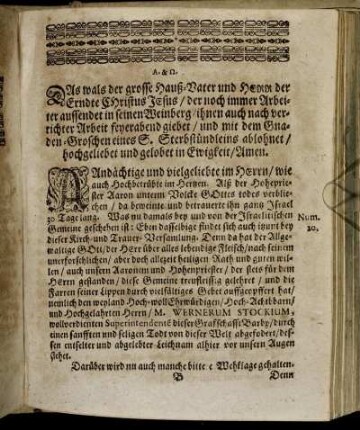 A. & Ω.
DAs wals der grosse Hauß-Vater und HErrn der
Erndte Christus JEsus / der noch immer Arbei-
ter aussendet in seinen Weinberg / ihnen auch nach ver-
richter Arbeit feyerabend giebet / und mit dem Gna-
den-Groschen eines S. Sterbstündleins ablohnet /
hochgeliebet und gelobet in Ewigkeit / Amen.
ANdächtige und vielgeliebte im HErrn / wie
auch Hochbetrübte im HErren. Alß der Hoheprie-
ster Aaron unterm Volcke GOttes todes verbli-
chen / da beweinte und betrauerte ihn gantz Jsrael
30 Tage lang. Was nu damals bey und von der Israelitischen
Num. 20.
Gemeine geschehen ist: Eben dasselbige findet sich auch itzunt bey
dieser Kirch- und Trauer-Versamlung. Denn da hat der Allge-
waltige GOtt / der HErr über alles lebendige Fleisch / nach seinem
unerforschlichen / aber doch allezeit heiligen Rath und guten wil-
len / auch unsern Aaronem und Hohenpriester / der stets für dem
HErrn gestanden / diese Gemeine treufleissig gelehret / und die
Farren seiner Lippen durch vielfältiges Gebet auffgeopffert hat /
nemlich den weyland Hoch-wollEhrwürdigen / Hoch-Achtbarn /
und Hochgelahrten HErrn / M. WERNERUM STOCKIUM,
wolverdienten Superintendente dieser Graffschafft Barby / durch
einen sanfften und seligen Todt von dieser Welt abgefodert / des-
sen entseelter und abgelebter Leichnam alhier vor unsern Augen
stehet.
Darüber wird nu auch manche bitte e Wehklage gehalten.
B
Denn